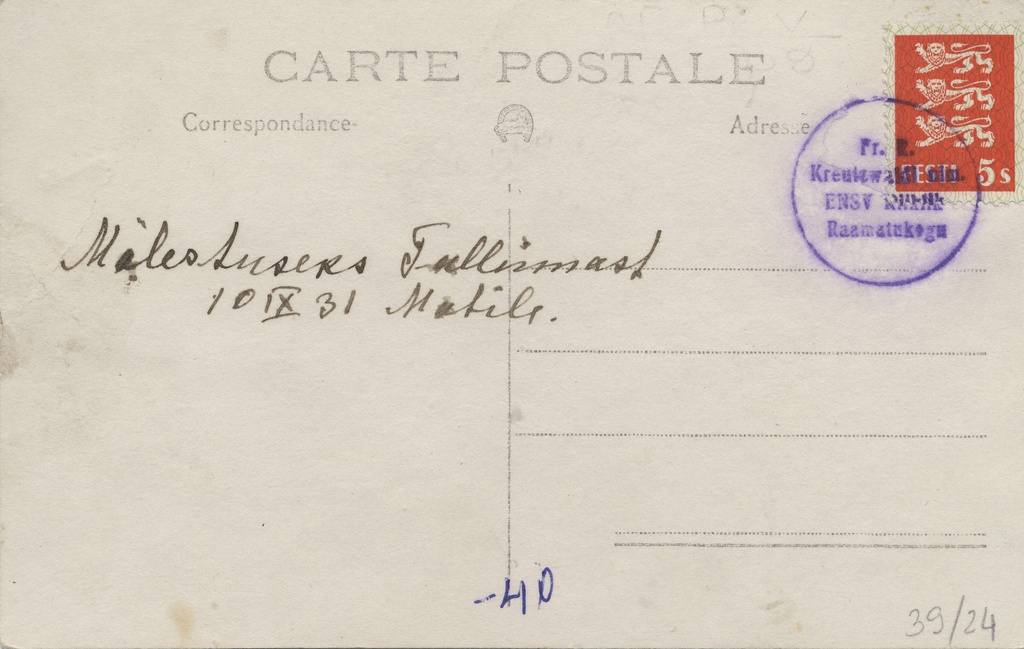 CARTE POSTALE
Correspondance
Adresse
EESTI 5s
Fr. R.
Kreutzwaldi nim.
ENSV Riiklik
Raamatukogu
Mälestuseks Tallinnast
10 IX 31 Matile.
-40
39/24